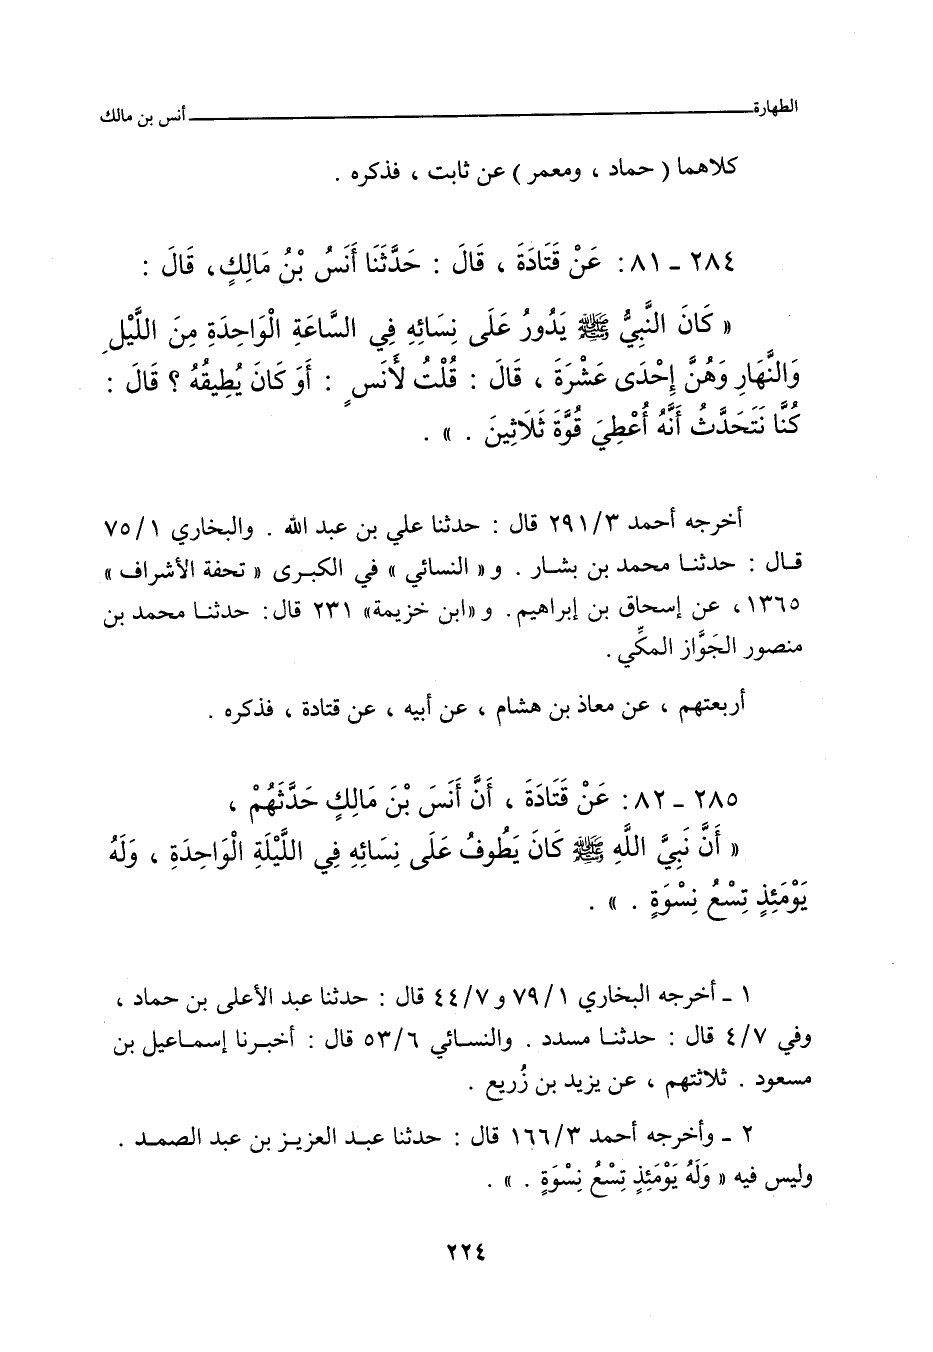 الطهارة ــــــــــ أنس بن مالك
كلاهما ( حماد ، ومعمر ) عن ثابت ، فذكره .
٢٨٤ ـ ٨١ : عَنْ قَتَادَةَ ، قَالَ : حَدَّثَنَا أَنَسُ بْنُ مَالِكٍ، قَالَ :
« كَانَ النَّبِيُّ ﷺ يَدُورُ عَلَى نِسَائِهِ فِي السَّاعَةِ الْوَاحِدَةِ مِنَ اللَّيْلِ
وَالنَّهَارِ وَهُنَّ إِحْدَى عَشْرَةَ ، قَالَ : قُلْتُ لأَنَسٍ : أَوَ كَانَ يُطِيقُهُ ؟ قَالَ :
كُنَّا نَتَحَدَّثُ أَنَّهُ أُعْطِيَ قُوَّةَ ثَلاَثِينَ . » .
أخرجه أحمد ٢٩١/٣ قال : حدثنا علي بن عبد الله . والبخاري ٧٥/١
قال : حدثنا محمد بن بشار . و« النسائي » في الكبرى « تحفة الأشراف »
١٣٦٥ ، عن إسحاق بن إبراهيم. و «ابن خزيمة» ٢٣١ قال: حدثنا محمد بن
منصور الجَوَّاز المكِّي .
أربعتهم ، عن معاذ بن هشام ، عن أبيه ، عن قتادة ، فذكره .
٢٨٥ ـ ٨٢ : عَنْ قَتَادَةَ ، أَنَّ أَنَسَ بْنَ مَالِكٍ حَدَّثَهُمْ ،
« أَنَّ نَبِيَّ اللَّهِ ﷺ كَانَ يَطُوفُ عَلَى نِسَائِهِ فِي اللَّيْلَةِ الْوَاحِدَةِ ، وَلَهُ
يَوْمَئِذٍ تِسْعُ نِسْوَةٍ . » .
١ ـ أخرجه البخاري ٧٩/١ و ٤٤/٧ قال : حدثنا عبد الأعلى بن حماد ،
وفي ٤/٧ قال : حدثنا مسدد . والنسائي ٥٣/٦ قال : أخبرنا إسماعيل بن
مسعود . ثلاثتهم ، عن يزيد بن زُريع .
٢ ـ وأخرجه أحمد ١٦٦/٣ قال : حدثنا عبد العزيز بن عبد الصمد .
وليس فيه « وَلَهُ يَوْمَئِذٍ تِسْعُ نِسْوَةٍ . » .
٢٢٤